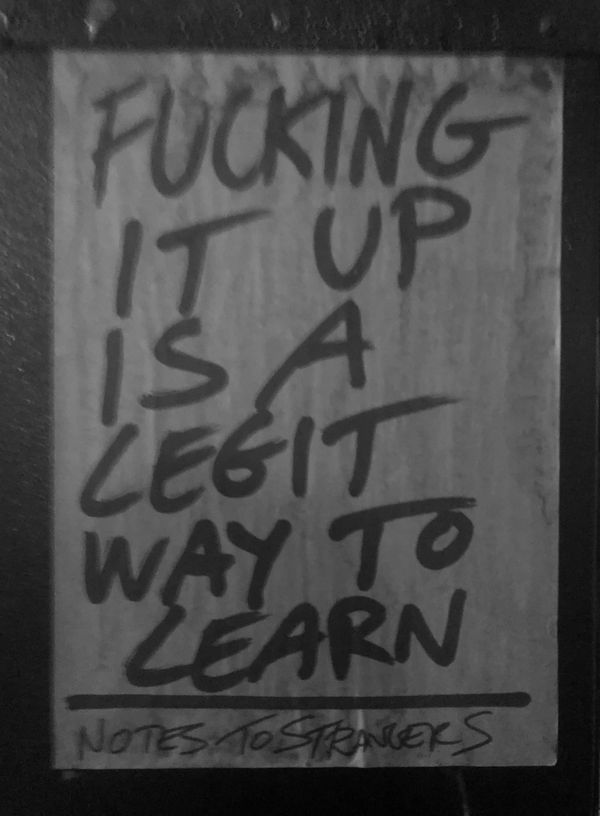 FUCKING
IT UP
IS A
LEGIT
WAY TO
LEARN
NOTES TO STRANGERS